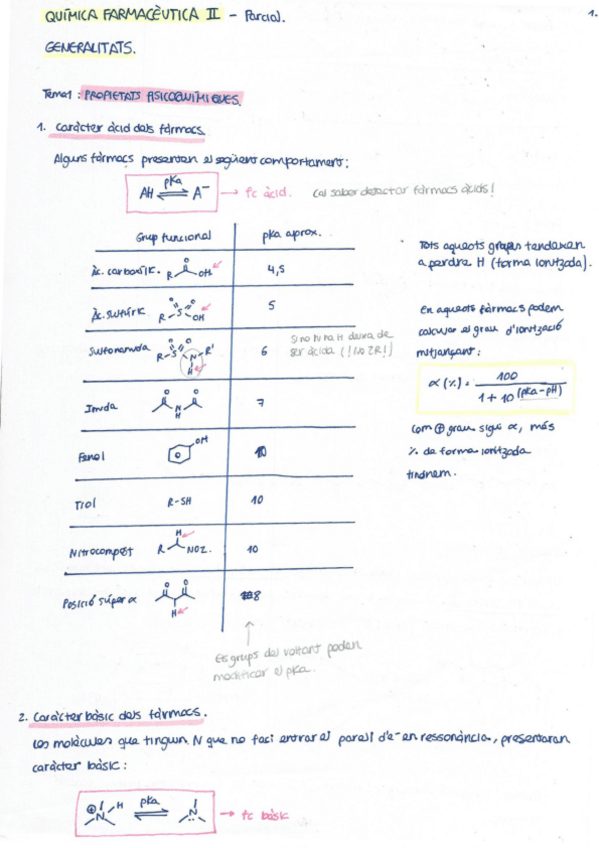 QUÍMICA FARMACÈUTICA II - Parcial.
1.
GENERALITATS.
Tema 1 : PROPIETATS FISICOQUÍMIQUES.
1. Caràcter àcid dels fàrmacs.
Alguns fàrmacs presenten el següent comportament:
AH ⇌ A⁻ → fc àcid. Cal saber detectar fàrmacs àcids!
pKa
Grup funcional pka aprox.
Àc. carboxílic. R O OH 4,5
Àc. sulfúric R-S OH O O 5
Sulfonamida R-S N R' H O O 6
Si no hi ha H deixa de
ser àcida (! NO 2R !)
Imida O O N H 7
Fenol OH 10
Tiol R-SH 10
Nitrocompost R H NO2. 10
Posició súper α O O H 8
Els grups del voltant poden
modificar el pka.
Tots aquests grups tendeixen
a perdre H (forma ionitzada).
En aquests fàrmacs podem
calcular el grau d'ionització
mitjançant:
α (%) = 100 / 1 + 10^(pKa-pH)
Com ⊕ grau sigui α, més
% de forma ionitzada
tindrem.
2. Caràcter bàsic dels fàrmacs.
Les molècules que tinguin N que no faci entrar el parell d'e⁻ en ressonància, presentaran
caràcter bàsic:
⊕ N H ⇌ N → fc bàsic
pka